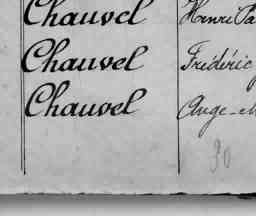 Chauvel Henri Pa
Chauvel Frédéric
Chauvel Ange-M
30